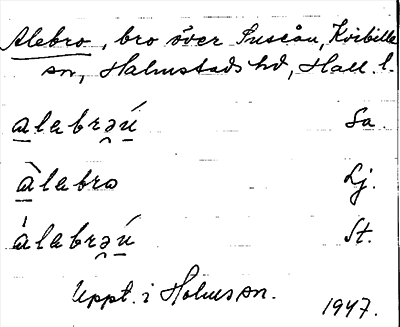 Alebro, bro över Suseån, Kvibille
sn, Halmstads hd, Hall. l.
a̲labrə̯ú̲ Sa.
à̲labro Lj.
á̲labrə̯ú̲ St.
Uppt. i Holms sn. 1947.